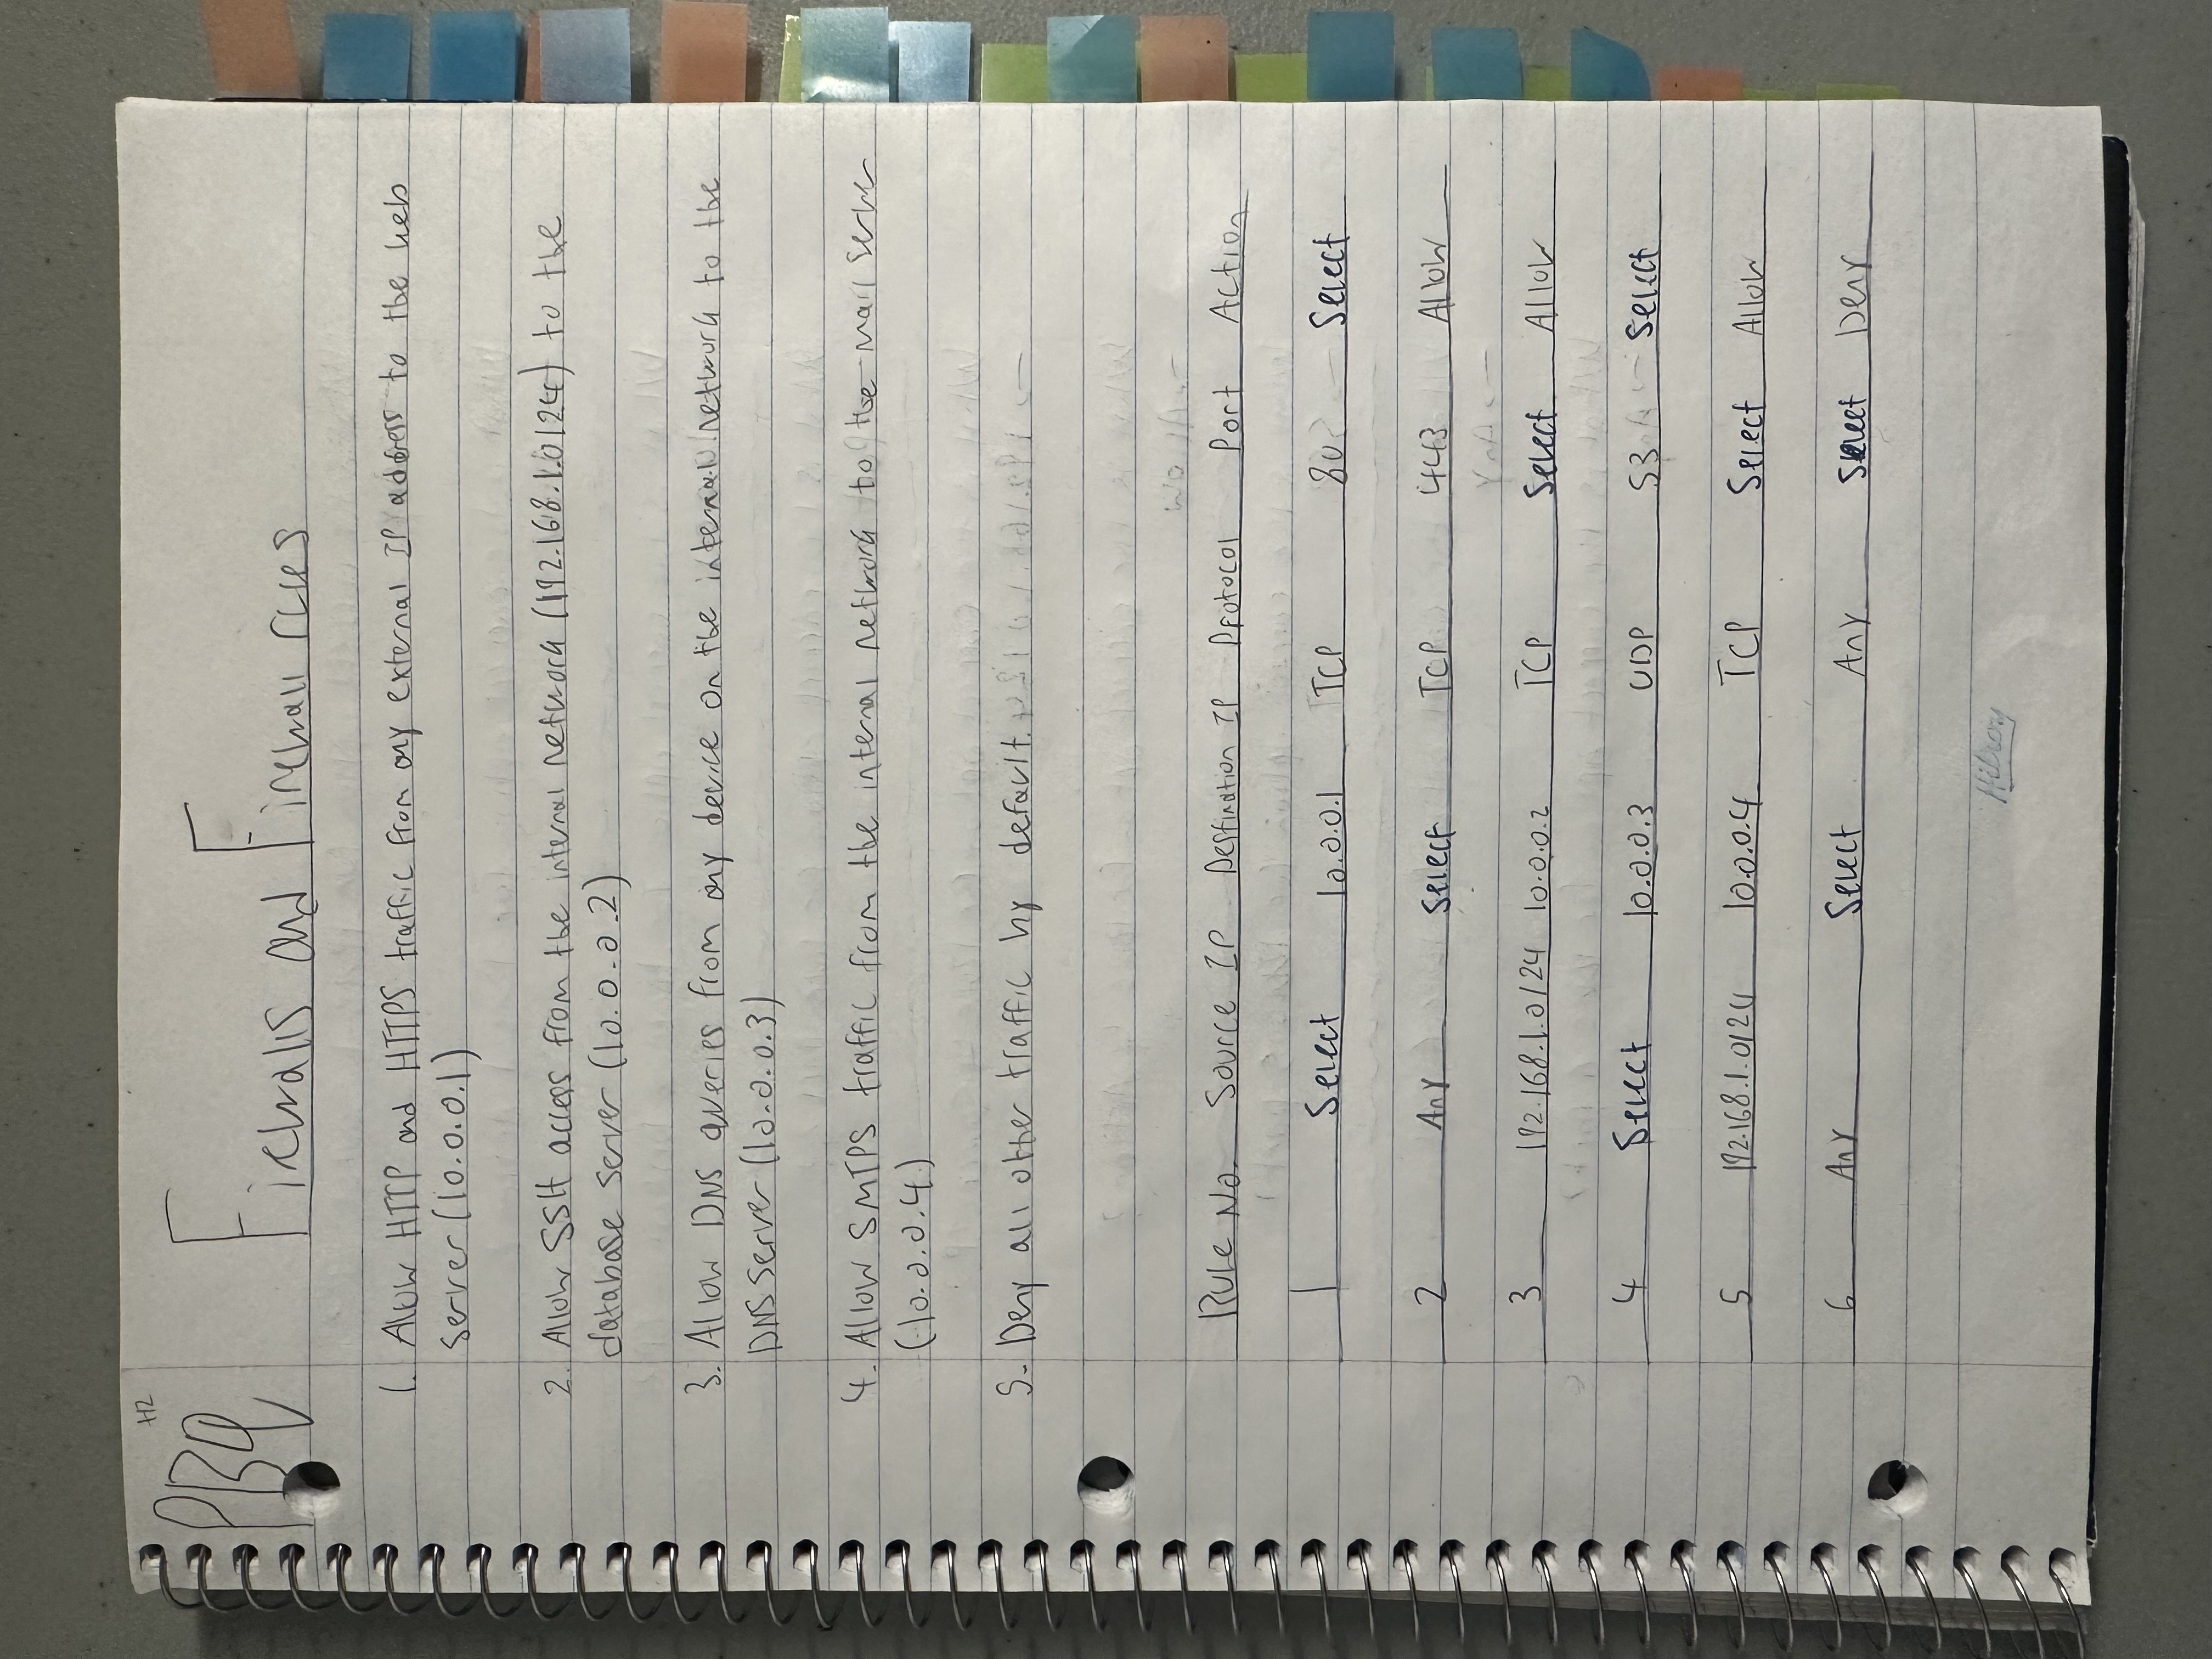 PBQ #2
Firewalls and Firewall rules
1. Allow HTTP and HTTPS traffic from any external IP address to the web
server (10.0.0.1)
2. Allow SSH access from the internal network (192.168.1.0/24) to the
database server (10.0.0.2)
3. Allow DNS queries from any device on the internal network to the
DNS server (10.0.0.3)
4. Allow SMTPS traffic from the internal network to the mail server
(10.0.0.4)
5. Deny all other traffic by default.
Rule No. Source IP Destination IP Protocol Port Action
1 Select 10.0.0.1 TCP 80 Select
2 Any Select TCP 443 Allow
3 192.168.1.0/24 10.0.0.2 TCP Select Allow
4 Select 10.0.0.3 UDP 53 Select
5 192.168.1.0/24 10.0.0.4 TCP Select Allow
6 Any Select Any Select Deny
Hilroy